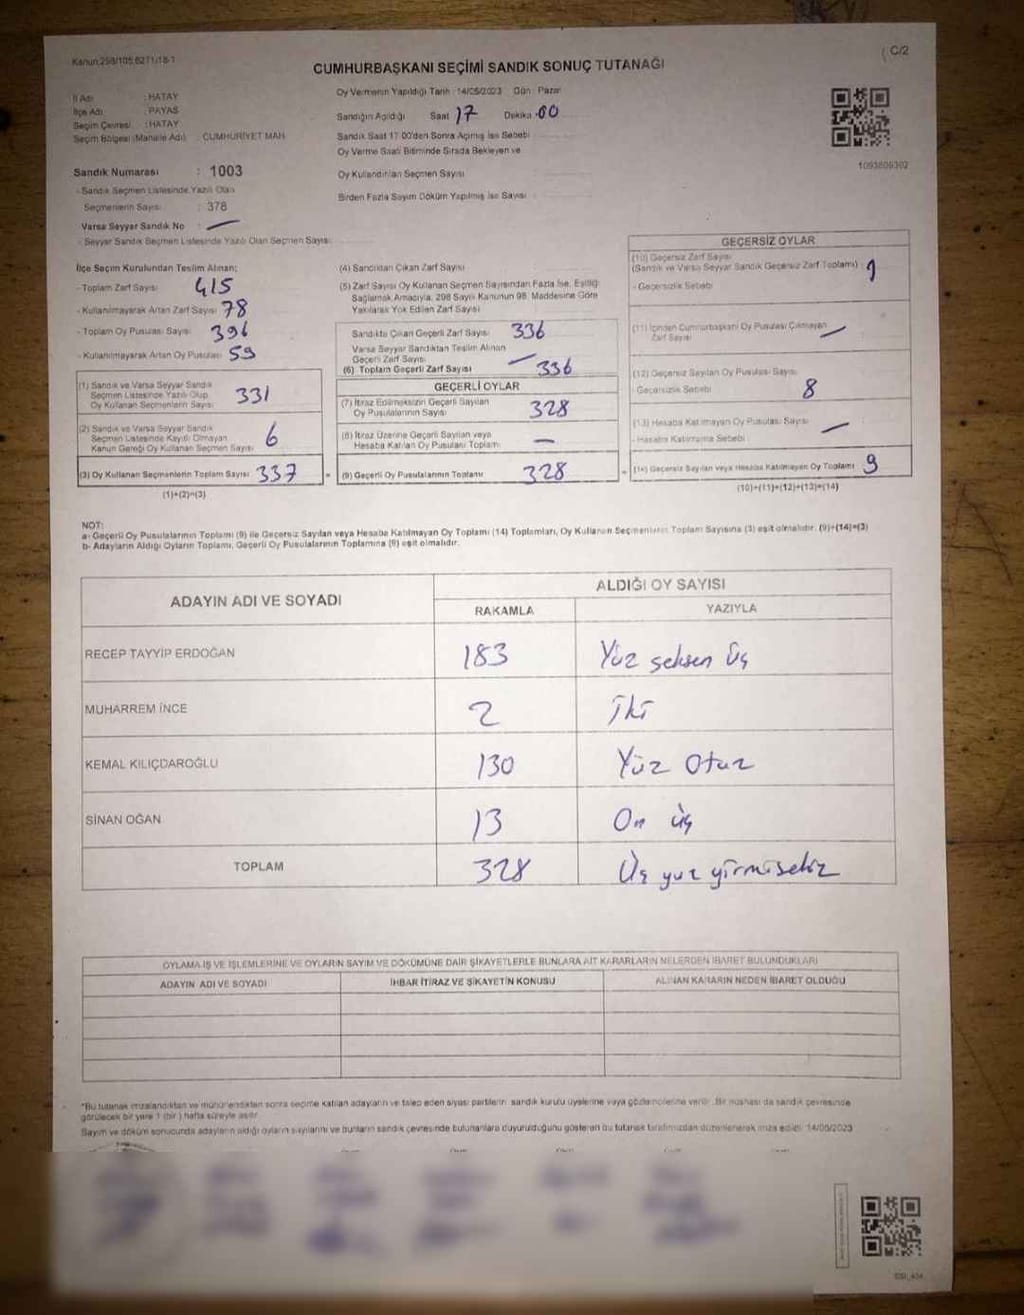 Kanun:298/105,6271/18-1
C/2
CUMHURBAŞKANI SEÇİMİ SANDIK SONUÇ TUTANAĞI
İl Adı : HATAY
İlçe Adı : PAYAS
Seçim Çevresi : HATAY
Seçim Bölgesi (Mahalle Adı) : CUMHURİYET MAH.
Oy Vermenin Yapıldığı Tarih : 14/05/2023 Gün : Pazar
Sandığın Açıldığı Saat 17 Dakika :00
Sandık Saat 17:00'den Sonra Açılmış İse Sebebi
Oy Verme Saati Bitiminde Sırada Bekleyen ve
Oy Kullandırılan Seçmen Sayısı
Birden Fazla Sayım Döküm Yapılmış İse Sayısı
1093809302
Sandık Numarası : 1003
- Sandık Seçmen Listesinde Yazılı Olan
Seçmenlerin Sayısı : 378
Varsa Seyyar Sandık No : —
- Seyyar Sandık Seçmen Listesinde Yazılı Olan Seçmen Sayısı:
İlçe Seçim Kurulundan Teslim Alınan;
- Toplam Zarf Sayısı 415
- Kullanılmayarak Artan Zarf Sayısı 78
- Toplam Oy Pusulası Sayısı 396
- Kullanılmayarak Artan Oy Pusulası 59
(1) Sandık ve Varsa Seyyar Sandık
Seçmen Listesinde Yazılı Olup
Oy Kullanan Seçmenlerin Sayısı 331
(2) Sandık ve Varsa Seyyar Sandık
Seçmen Listesinde Kayıtlı Olmayan
Kanun Gereği Oy Kullanan Seçmen Sayısı 6
(3) Oy Kullanan Seçmenlerin Toplam Sayısı 337
(1)+(2)=(3)
(4) Sandıktan Çıkan Zarf Sayısı
(5) Zarf Sayısı Oy Kullanan Seçmen Sayısından Fazla İse, Eşitliği
Sağlamak Amacıyla, 298 Sayılı Kanunun 98. Maddesine Göre
Yakılarak Yok Edilen Zarf Sayısı
Sandıkta Çıkan Geçerli Zarf Sayısı 336
Varsa Seyyar Sandıktan Teslim Alınan
Geçerli Zarf Sayısı —
(6) Toplam Geçerli Zarf Sayısı 336
GEÇERLİ OYLAR
(7) İtiraz Edilmeksizin Geçerli Sayılan
Oy Pusulalarının Sayısı 328
(8) İtiraz Üzerine Geçerli Sayılan veya
Hesaba Katılan Oy Pusulası Toplamı —
= (9) Geçerli Oy Pusulalarının Toplamı 328
GEÇERSİZ OYLAR
(10) Geçersiz Zarf Sayısı
(Sandık ve Varsa Seyyar Sandık Geçersiz Zarf Toplamı) 1
- Geçersizlik Sebebi
(11) İçinden Cumhurbaşkanı Oy Pusulası Çıkmayan
Zarf Sayısı —
(12) Geçersiz Sayılan Oy Pusulası Sayısı
- Geçersizlik Sebebi 8
(13) Hesaba Katılmayan Oy Pusulası Sayısı —
- Hesaba Katılmama Sebebi
+ (14) Geçersiz Sayılan veya Hesaba Katılmayan Oy Toplamı 9
(10)+(11)+(12)+(13)=(14)
NOT:
a- Geçerli Oy Pusulalarının Toplamı (9) ile Geçersiz Sayılan veya Hesaba Katılmayan Oy Toplamı (14) Toplamları, Oy Kullanan Seçmenlerin Toplam Sayısına (3) eşit olmalıdır. (9)+(14)=(3)
b- Adayların Aldığı Oyların Toplamı, Geçerli Oy Pusulalarının Toplamına (9) eşit olmalıdır.
ADAYIN ADI VE SOYADI
ALDIĞI OY SAYISI
RAKAMLA YAZIYLA
RECEP TAYYİP ERDOĞAN 183 Yüz seksen üç
MUHARREM İNCE 2 İki
KEMAL KILIÇDAROĞLU 130 Yüz Otuz
SİNAN OĞAN 13 On üç
TOPLAM 328 Üç yüz yirmisekiz
OYLAMA İŞ VE İŞLEMLERİNE VE OYLARIN SAYIM VE DÖKÜMÜNE DAİR ŞİKAYETLERLE BUNLARA AİT KARARLARIN NELERDEN İBARET BULUNDUKLARI
ADAYIN ADI VE SOYADI İHBAR İTİRAZ VE ŞİKAYETİN KONUSU ALINAN KARARIN NEDEN İBARET OLDUĞU
*Bu tutanak imzalandıktan ve mühürlendikten sonra seçime katılan adayların ve talep eden siyasi partilerin sandık kurulu üyelerine veya gözlemcilerine verilir. Bir nüshası da sandık çevresinde
görülecek bir yere 1 (bir) hafta süreyle asılır.
Sayım ve döküm sonucunda adayların aldığı oyların sayılarını ve bunların sandık çevresinde bulunanlara duyurulduğunu gösteren bu tutanak tarafımızdan düzenlenerek imza edildi. 14/05/2023